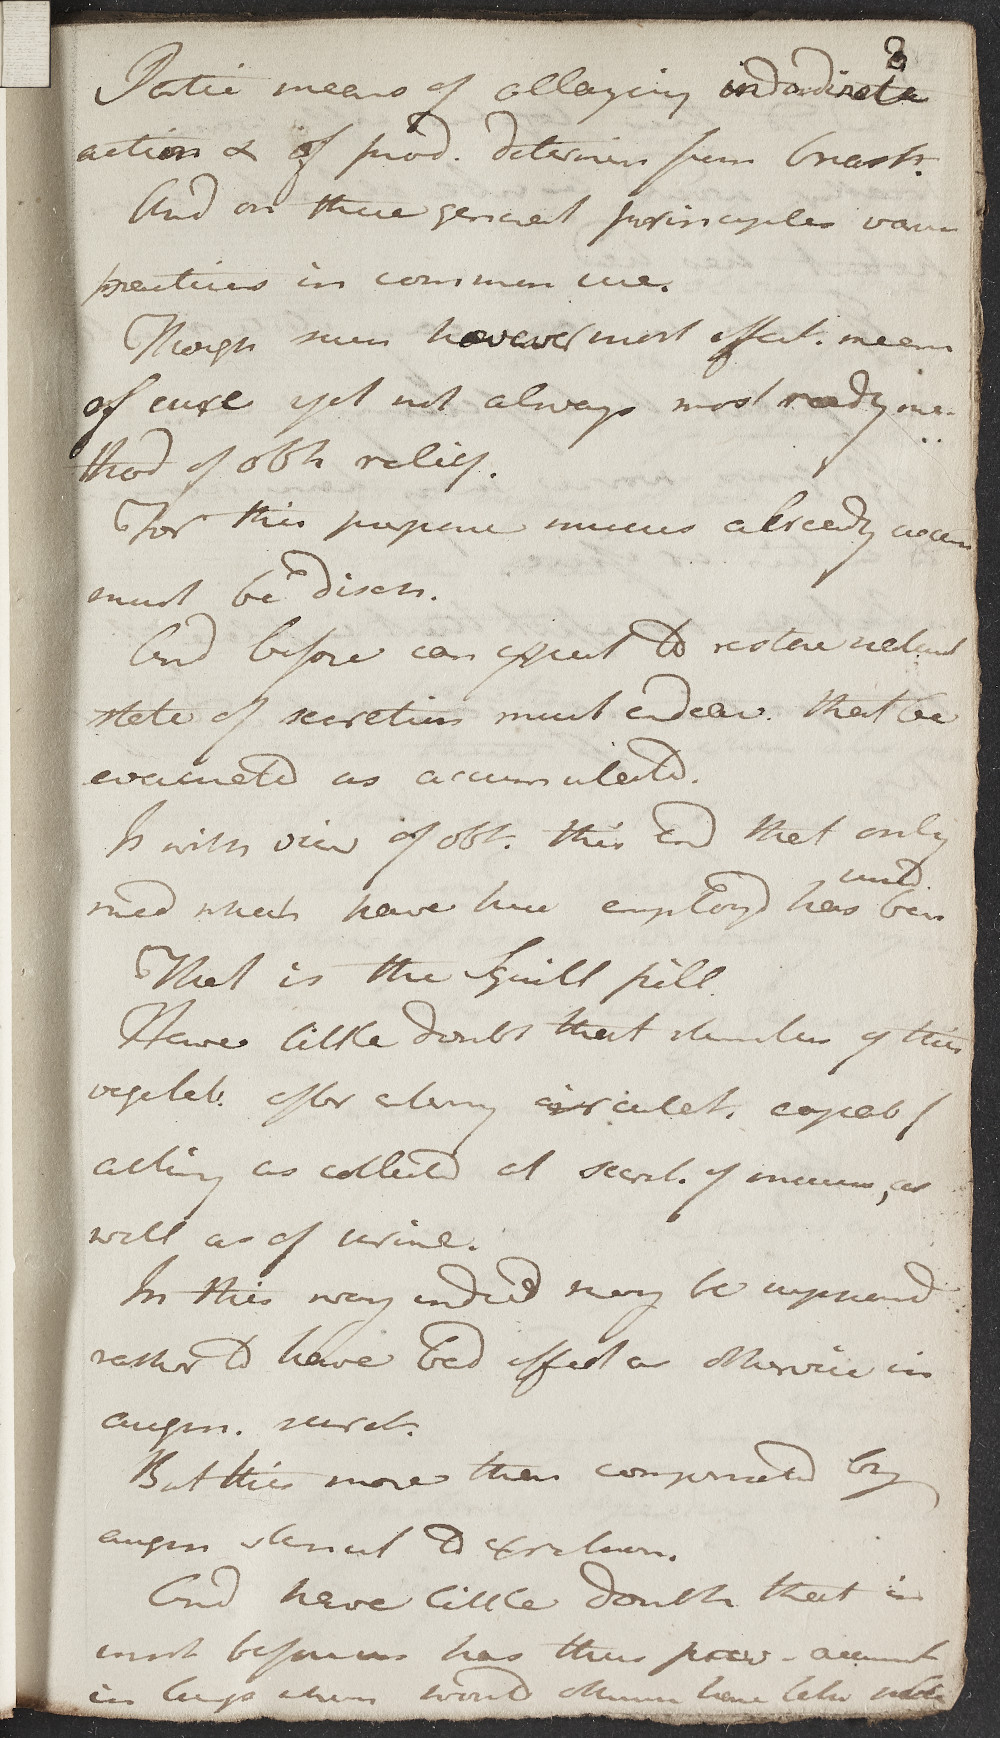 8
Partic means of allaying inordinate
action & of prod. determin from breast.
And on these general principles vari
practices in common use.
Though such however most effect. means
of cure yet not always most ready me-
thod of obtn relief.
For this purpose mucus already accum
must be disch.
And before can expect to restore natural
state of secretion must endeav. that be
evacuated as accumulated.
Is with view of obt. this end that only
med which have here employd has been
used.
That is the Squill pill.
Have little doubt that stimulus of this
vegetab. after entering circulat. capab
acting as collected at secret. of mucus, as
well as of urine.
In this way indeed may be supposed
rather to have bad effect as otherwise in
augm. secret.
But this more than compensated by
augm stimul to excretion.
And have little doubt that in
must before us has thus prev. accumt
in lungs which would otherwise have taken place